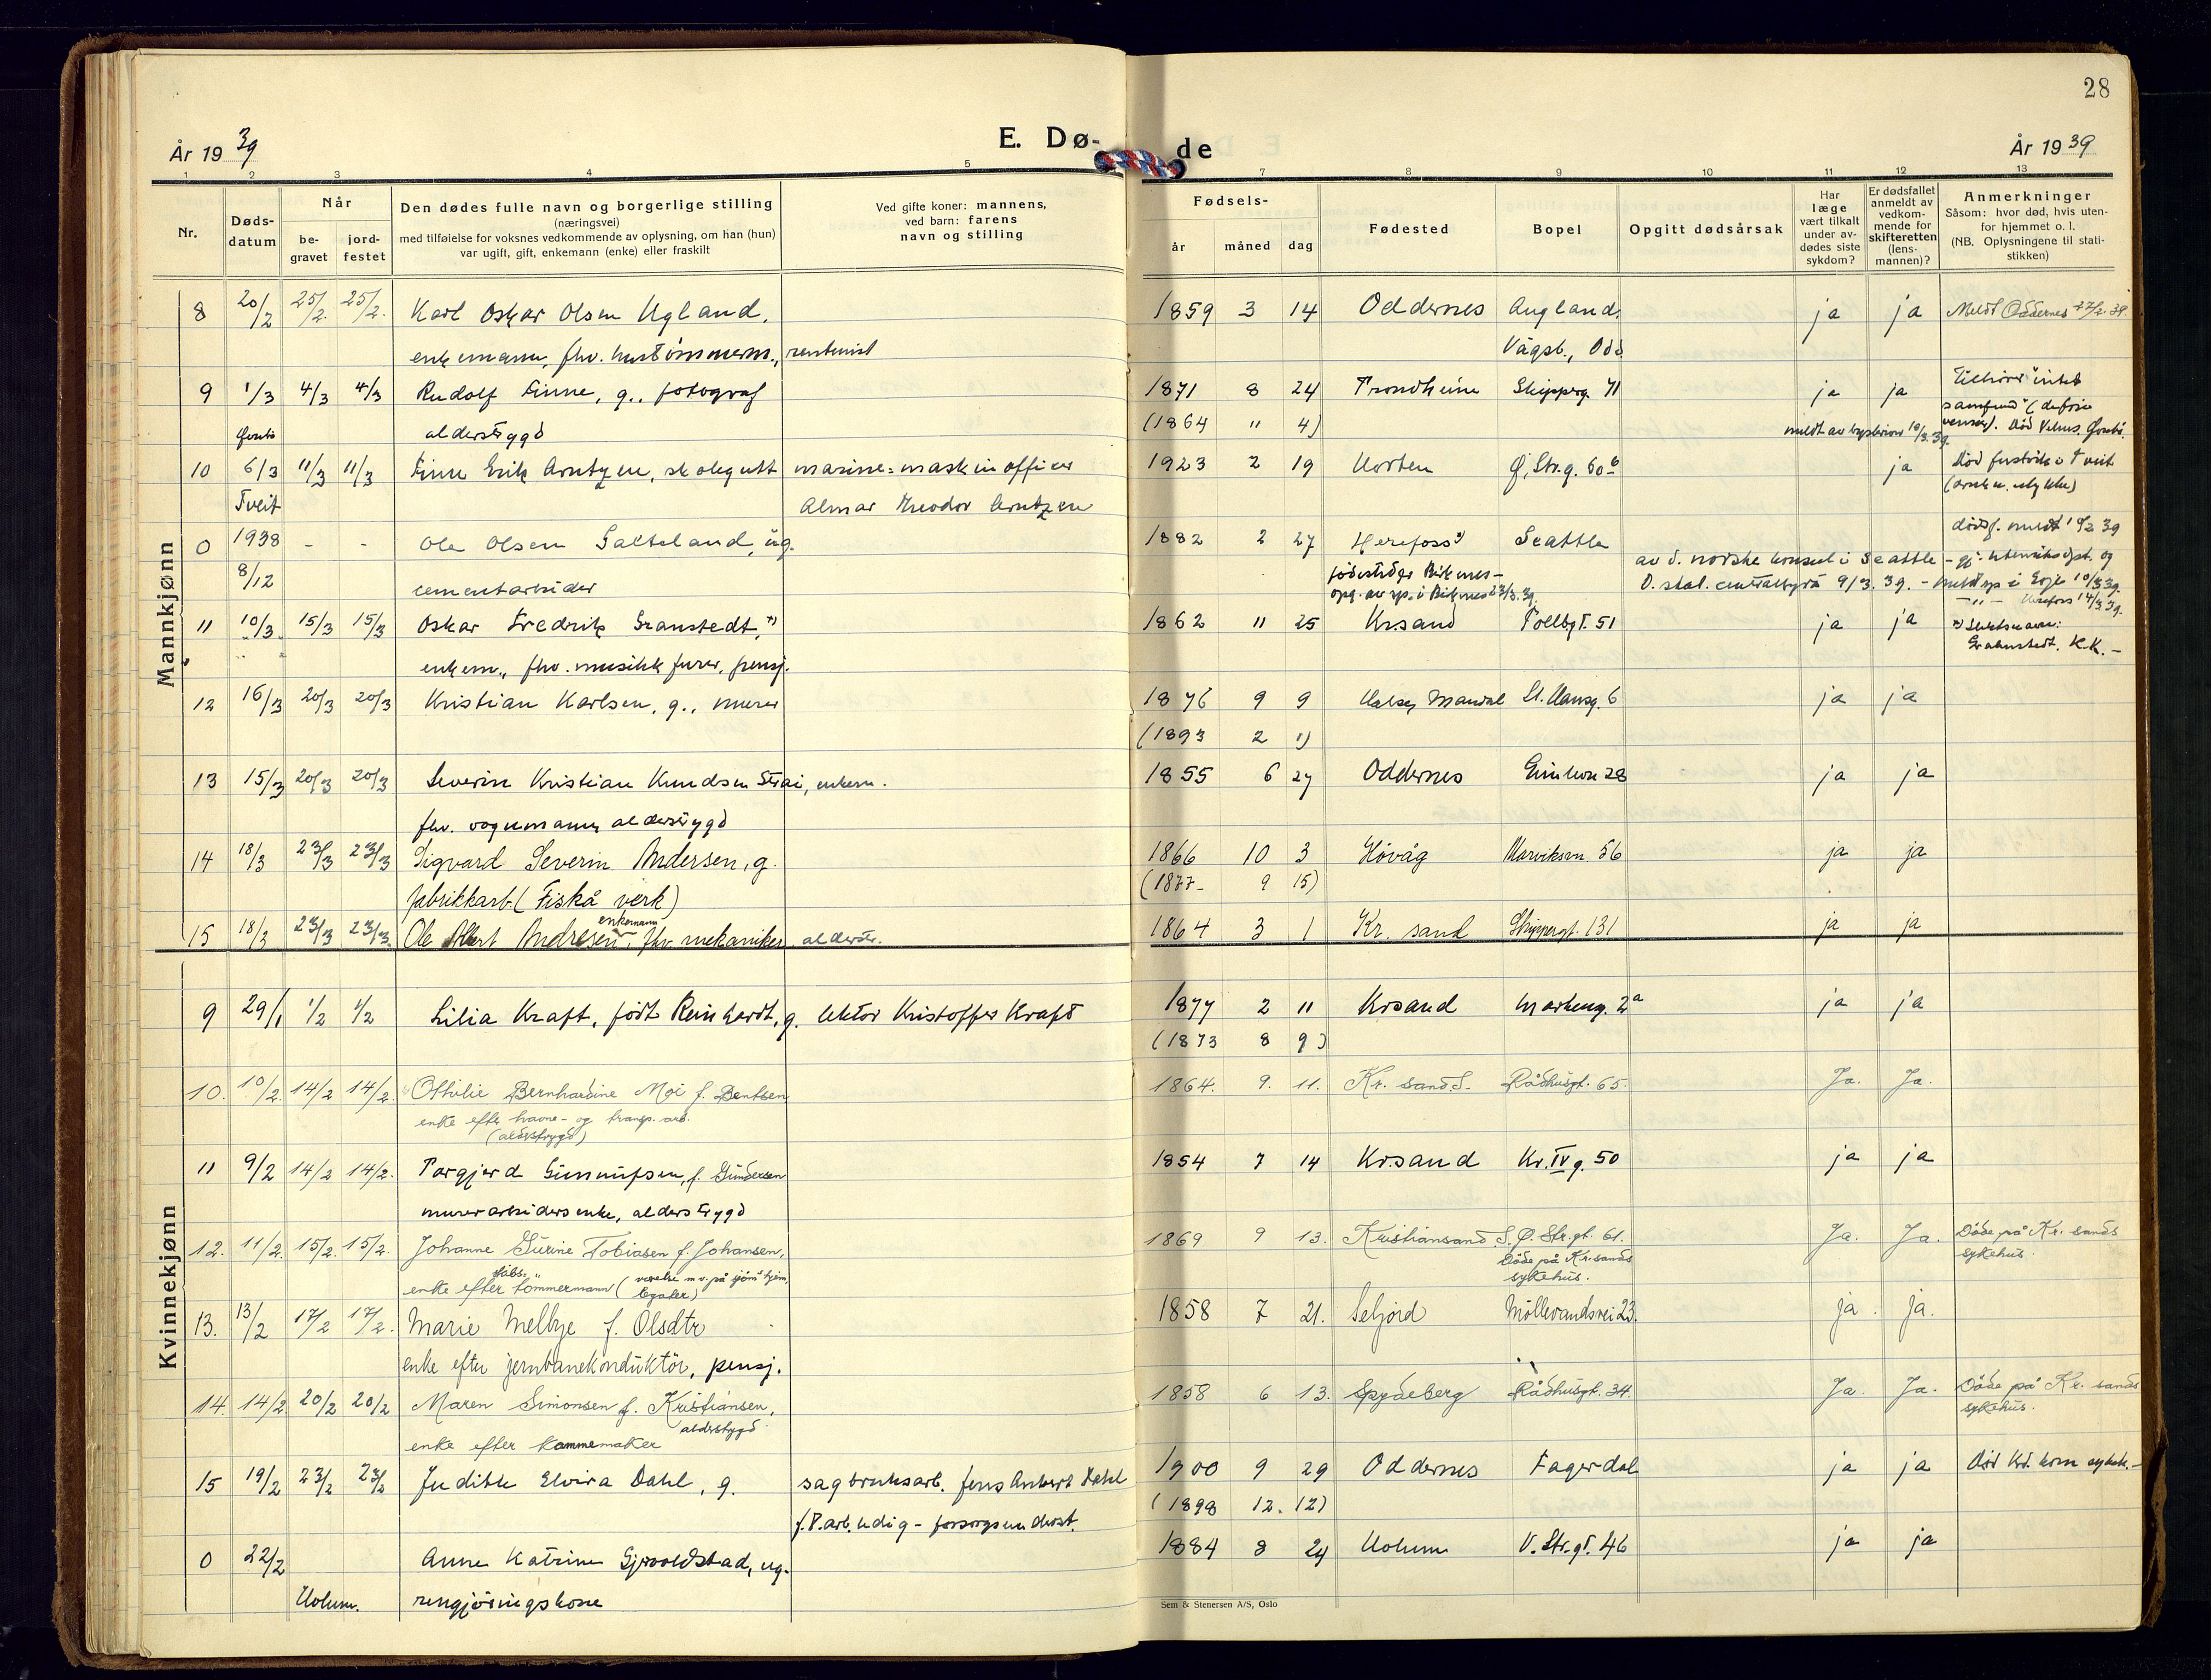 28
År 19 39
E. Dø-
de
År 19 39
1 2 3 4 5 7 8 9 10 11 12 13
Nr.
Døds-
datum
Når
be-
gravet
jord-
festet
Den dødes fulle navn og borgerlige stilling
(næringsvei)
med tilføielse for voksnes vedkommende av oplysning, om han (hun)
var ugift, gift, enkemann (enke) eller fraskilt
Ved gifte koner: mannens,
ved barn: farens
navn og stilling
Fødsels-
år måned dag
Fødested
Bopel
Opgitt dødsårsak
Har
læge
vært tilkalt
under av-
dødes siste
sykdom?
Er dødsfallet
anmeldt av
vedkom-
mende for
skifteretten
(lens-
mannen)?
Anmerkninger
Såsom: hvor død, hvis uten-
for hjemmet o. l.
(NB. Oplysningene til stati-
stikken)
Mannkjønn
8 20/2 25/2. 25/2. Karl Oskar Olsen Ugland, 1859 3 14 Oddernes Augland, ja ja Meldt Oddernes 27/2. 39.
enkemann, fhv. hustømmerm., rentenist Vågsb., Odd
9 1/3 4/3 4/3 Rudolf Finne, g., fotograf 1871 8 24 Trondheim Skipperg. 71 ja ja
alderstrygd (1864 " 4)
10 6/3 11/3 11/3 Finn Erik Arntzen, skolegutt marine-maskinofficer 1923 2 19 Horten Ø. Str. g. 60 b ja
Tveit Almar Theodor Arntzen
0 1938 - - Ole Olsen Sætteland, ug. 1882 2 27 Herefoss Seattle
8/12 cementarbeider av d. norske konsul i Seattle
11 10/3 15/3 15/3 Oskar Fredrik Granstedt, 1862 11 25 Kr.sand Tollbgt. 51 ja ja
enkem., fhv. musikkfurer, pensj. Grahnstedt. K.K. -
12 16/3 20/3 20/3 Kristian Karlsen, g., murer 1876 9 9 Halse, Mandal St. Hansg. 6 ja ja
(1893 2 1)
13 15/3 20/3 20/3 Severin Kristian Knudsen Strai, enkem. 1855 6 27 Oddernes 28 ja ja
fhv. vognmann, alderstrygd
14 18/3 23/3 23/3 Sigvard Severin Andersen, g. 1866 10 3 Høvåg Marviksvn. 56 ja ja
fabrikkarb (Fiskå verk) (1877- 9 15)
15 18/3 23/3 23/3. Ole Albert Andresen, enkemann fhv. mekaniker alderstr. 1864 3 1 Kr. sand Skippergt. 131 ja ja
Kvinnekjønn
9 29/1 1/2 1/2 Lilia Kraft, født Reinhardt, g. lektor Kristoffer Kraft 1877 2 11 Krsand Markeng. 2a ja ja
(1873 8 9)
10. 10/2. 14/2 14/2. Othilie Bernhardine Moi f. Bentsen 1864. 9. 11. Kr. sand S. Rådhusgt. 65. Ja. Ja.
enke efter havne- og transp. arb.
(alderstrygd)
11 9/2 14/2 14/2. Torgjerd Gunnufsen, f. Gundersen 1854 7 14 Kr.sand Kr. IV g. 50 ja ja
murerarbeiders enke, alderstrygd
12. 11/2. 15/2. 15/2. Johanne Surine Tobiasen f. Johansen, 1869 9 13. Kristiansand S. Ø. Str.gt. 61. Ja. Ja. Døde på Kr. sands
enke efter skibs-tømmermann (værelse m.v. på sjöms hjem, legater) Døde på Kr.sands sykehus. sykehus.
13. 13/2 17/2 17/2. Marie Melbye f. Olsdtr 1858 7 21. Seljord Möllevandsvei 23. ja. ja.
enke efter jernbanekonduktör, pensj.
14. 14/2. 20/2 20/2 Maren Simonsen f. Kristiansen, 1858 6 13. Spydeberg Rådhusgt. 34. Ja. Ja. Døde på Kr. sands
enke efter kammemaker alderstrygd sykehus.
15 19/2 23/2 23/2 Judith Elvira Dahl, g. sagbruksarb. Jens Anbert Dahl 1900 9 29 Oddernes Fagerdal ja ja Død Krs. kom sykeh. -
f.T. arb.ledig - forsorgsunderst. (1898 12. 12)
0 22/2 Anne Katrine Gjervoldstad, ug. 1884 8 24 Holum V. Str. gt. 46 ja ja
Holum. rengjøringskone
Sem & Stenersen A/S, Oslo